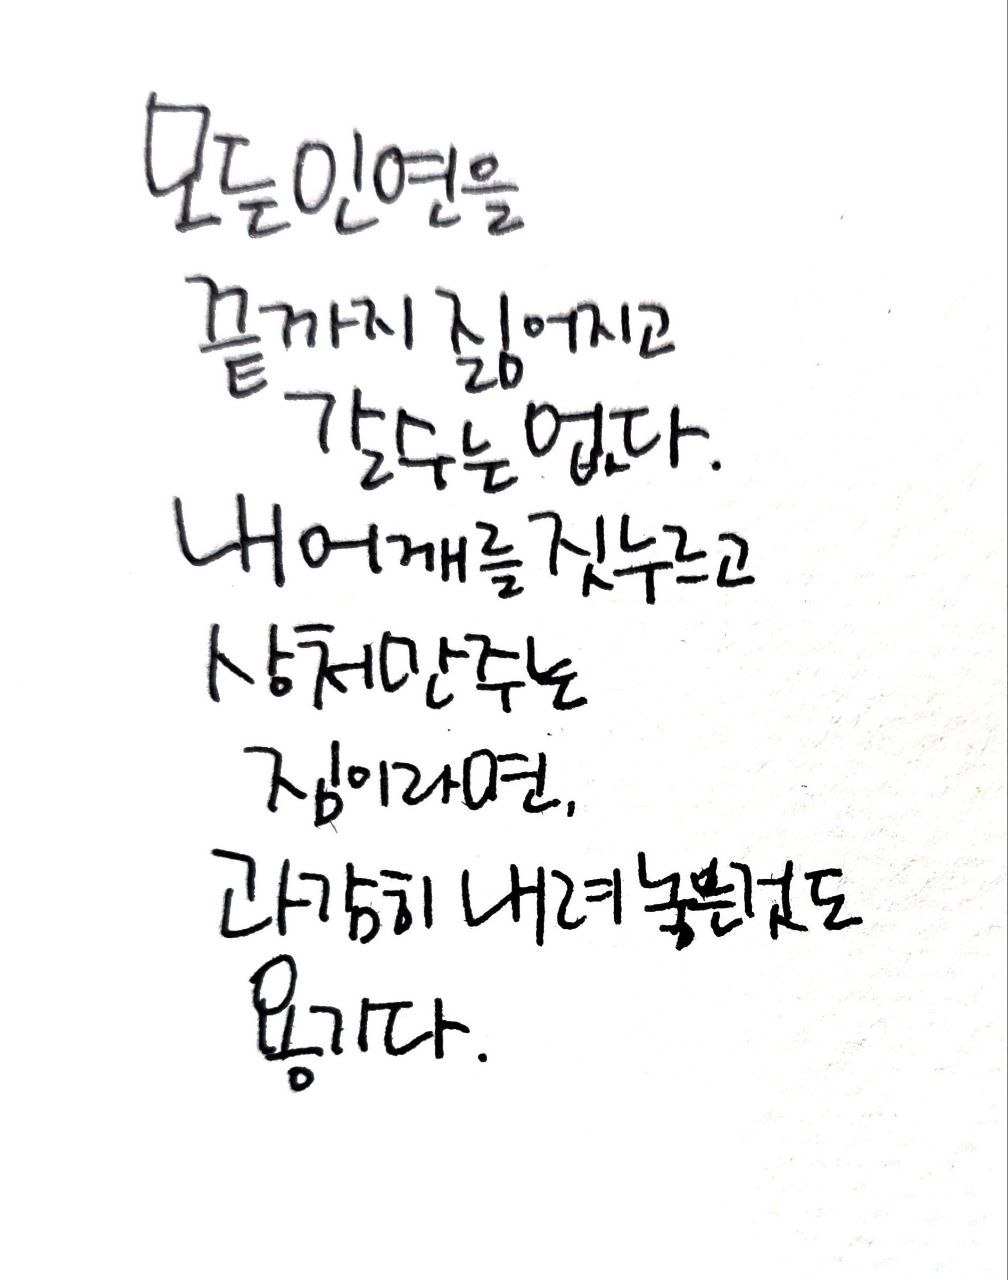 모든 인연을
끝까지 짊어지고
갈수는 없다.
내 어깨를 짓누르고
상처만 주는
짐이라면,
과감히 내려 놓는것도
용기다.